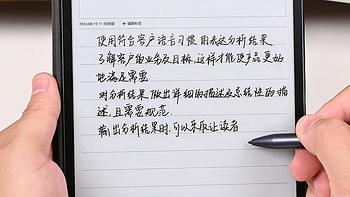 2024-08-19 11:55创建
编辑标签
使用符合客户语言习惯的表达分析结果
了解客户的业务及目标,这样才能使产品更好
地满足需要
对分析结果做出详细的描述及系统性的描
述,且需要规范.
输出分析结果时,可以采取让读者